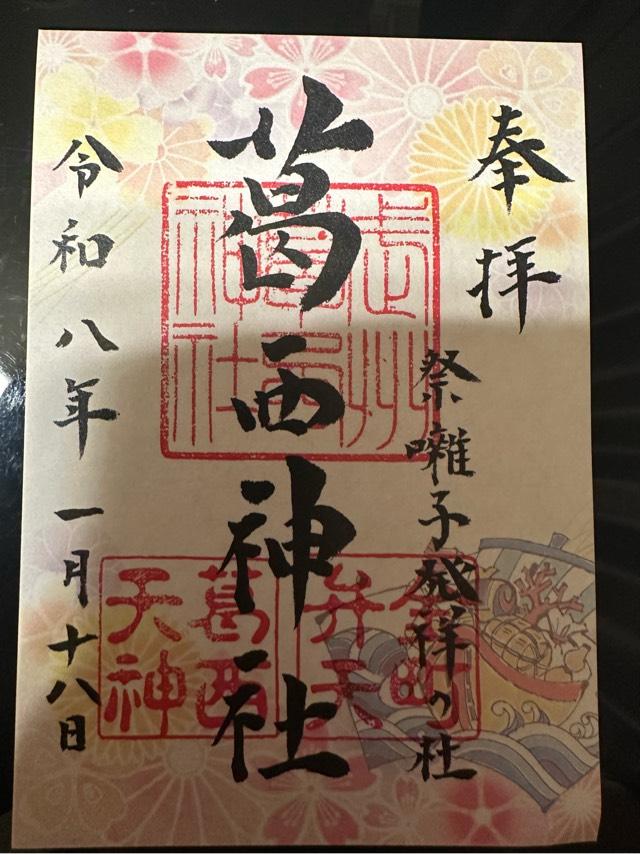 奉拝
祭囃子発祥の杜
葛西神社
武州
葛西
神社
金町
弁天
葛西
天神
令和八年一月十八日